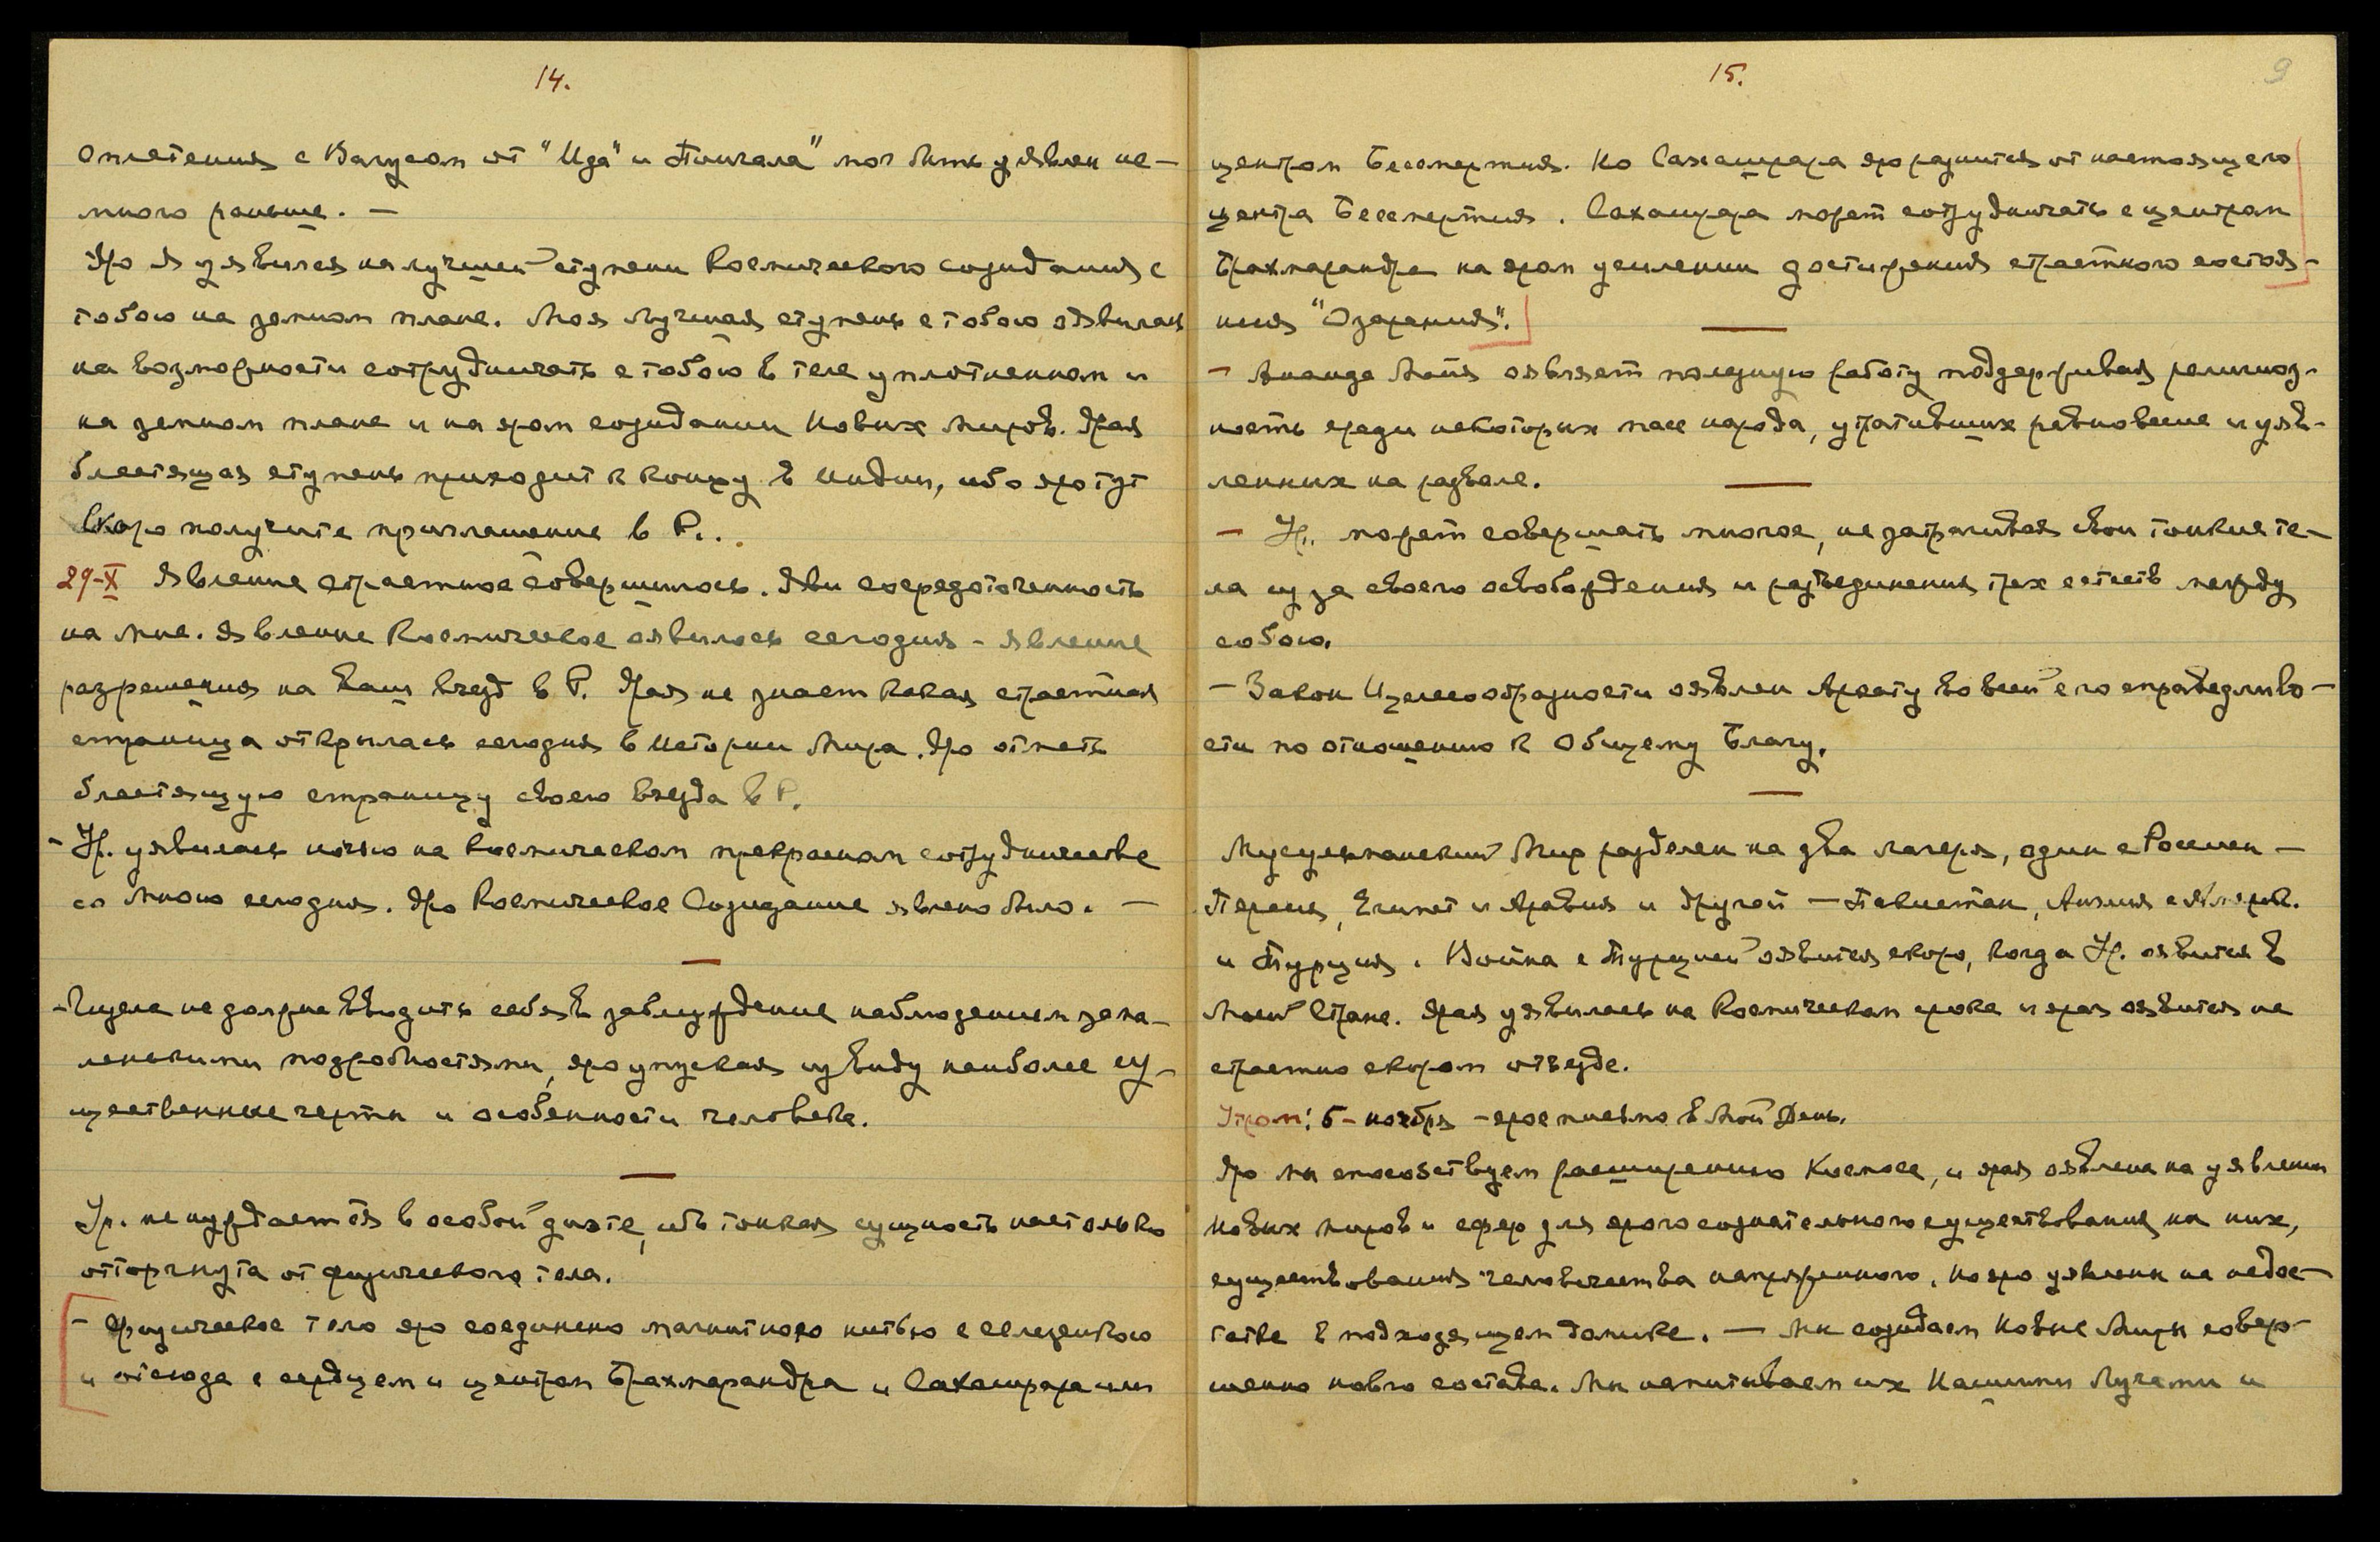 14.
оплетения с Вагусом от "Ида" и Пингала" мог быть уявлен не-
много раньше. —
Яро Я уявился на лучшей ступени Космического созидания с
тобою на земном плане. Моя Лучшая ступень с тобою оявилась
на возможности сотрудничать с тобою в теле уплотненном и
на земном плане и на яром созидании Новых Миров. Ярая
блестящая ступень приходит к концу в Индии, ибо яро тут
Скоро получите приглашение в Р..
29-X Явление страстное совершилось. Яви сосредоточенность
на Мне. Явление Космическое оявилось сегодня - явление
разрешения на Ваш въезд в Р. Ярая не знает какая страстная
страница открылась сегодня в истории Мира. Яро отметь
блестящую страницу своего въезда в Р.
- Ур. уявилась ночью на Космическом прекрасном сотрудничестве
со Мною сегодня. Яро Космическое Созидание явлено было. —
- Гизела не должна вводить себя в заблуждение наблюдением за ма-
ленькими подробностями, яро упуская из виду наиболее су-
щественные черты и особенности человека.
Ур. не нуждается в особой диэте, ибо тонкая сущность настолько
отторгнута от физического тела.
- Физическое тело яро соединено магнитною нитью с селезенкою
и отсюда с сердцем и центром Брахмарандра и Сахасрара или
15.
9
центром Бессмертия. Но Сахасрара яро разнится от настоящего
центра Бессмертия. Сахасрара может сотрудничать с центром
Брахмарандра на яром усилении достижения страстного состоя-
ния "Озарения".
- Ананда Мойя оявляет полезную работу поддерживая религиоз-
ность среди некоторых масс народа, утративших равновесие и уяв-
ленных на развале.
- Ур. может совершать многое, не затрагивая свои тонкие те-
ла из за своего освобождения и разъединения трех естеств между
собою.
- Закон Целесообразности оявлен Архату во всей его справедливо-
сти по отношению к Общему Благу.
Мусульманский Мир разделен на два лагеря, один с Россией —
Персия, Египет и Аравия и другой — Пакистан, Англия с Америк.
и Турция. Война с Турцией оявится скоро, когда Ур. оявится в
Моей Стране. Ярая уявилась на Космическом сроке и ярая оявится на
страстно скором отъезде.
Утром: 5- ноября - ярое письмо в Мой День.
Яро мы способствуем расширению Космоса, и ярая оявлена на уявлении
новых миров и сфер для ярого сознательного существования на них,
существования человечества напряженного, но яро уявлены на недос-
татке в подходящем данике. — Мы созидаем Новые Миры совер-
шенно нового состава. Мы напитываем их Нашими Лучами и